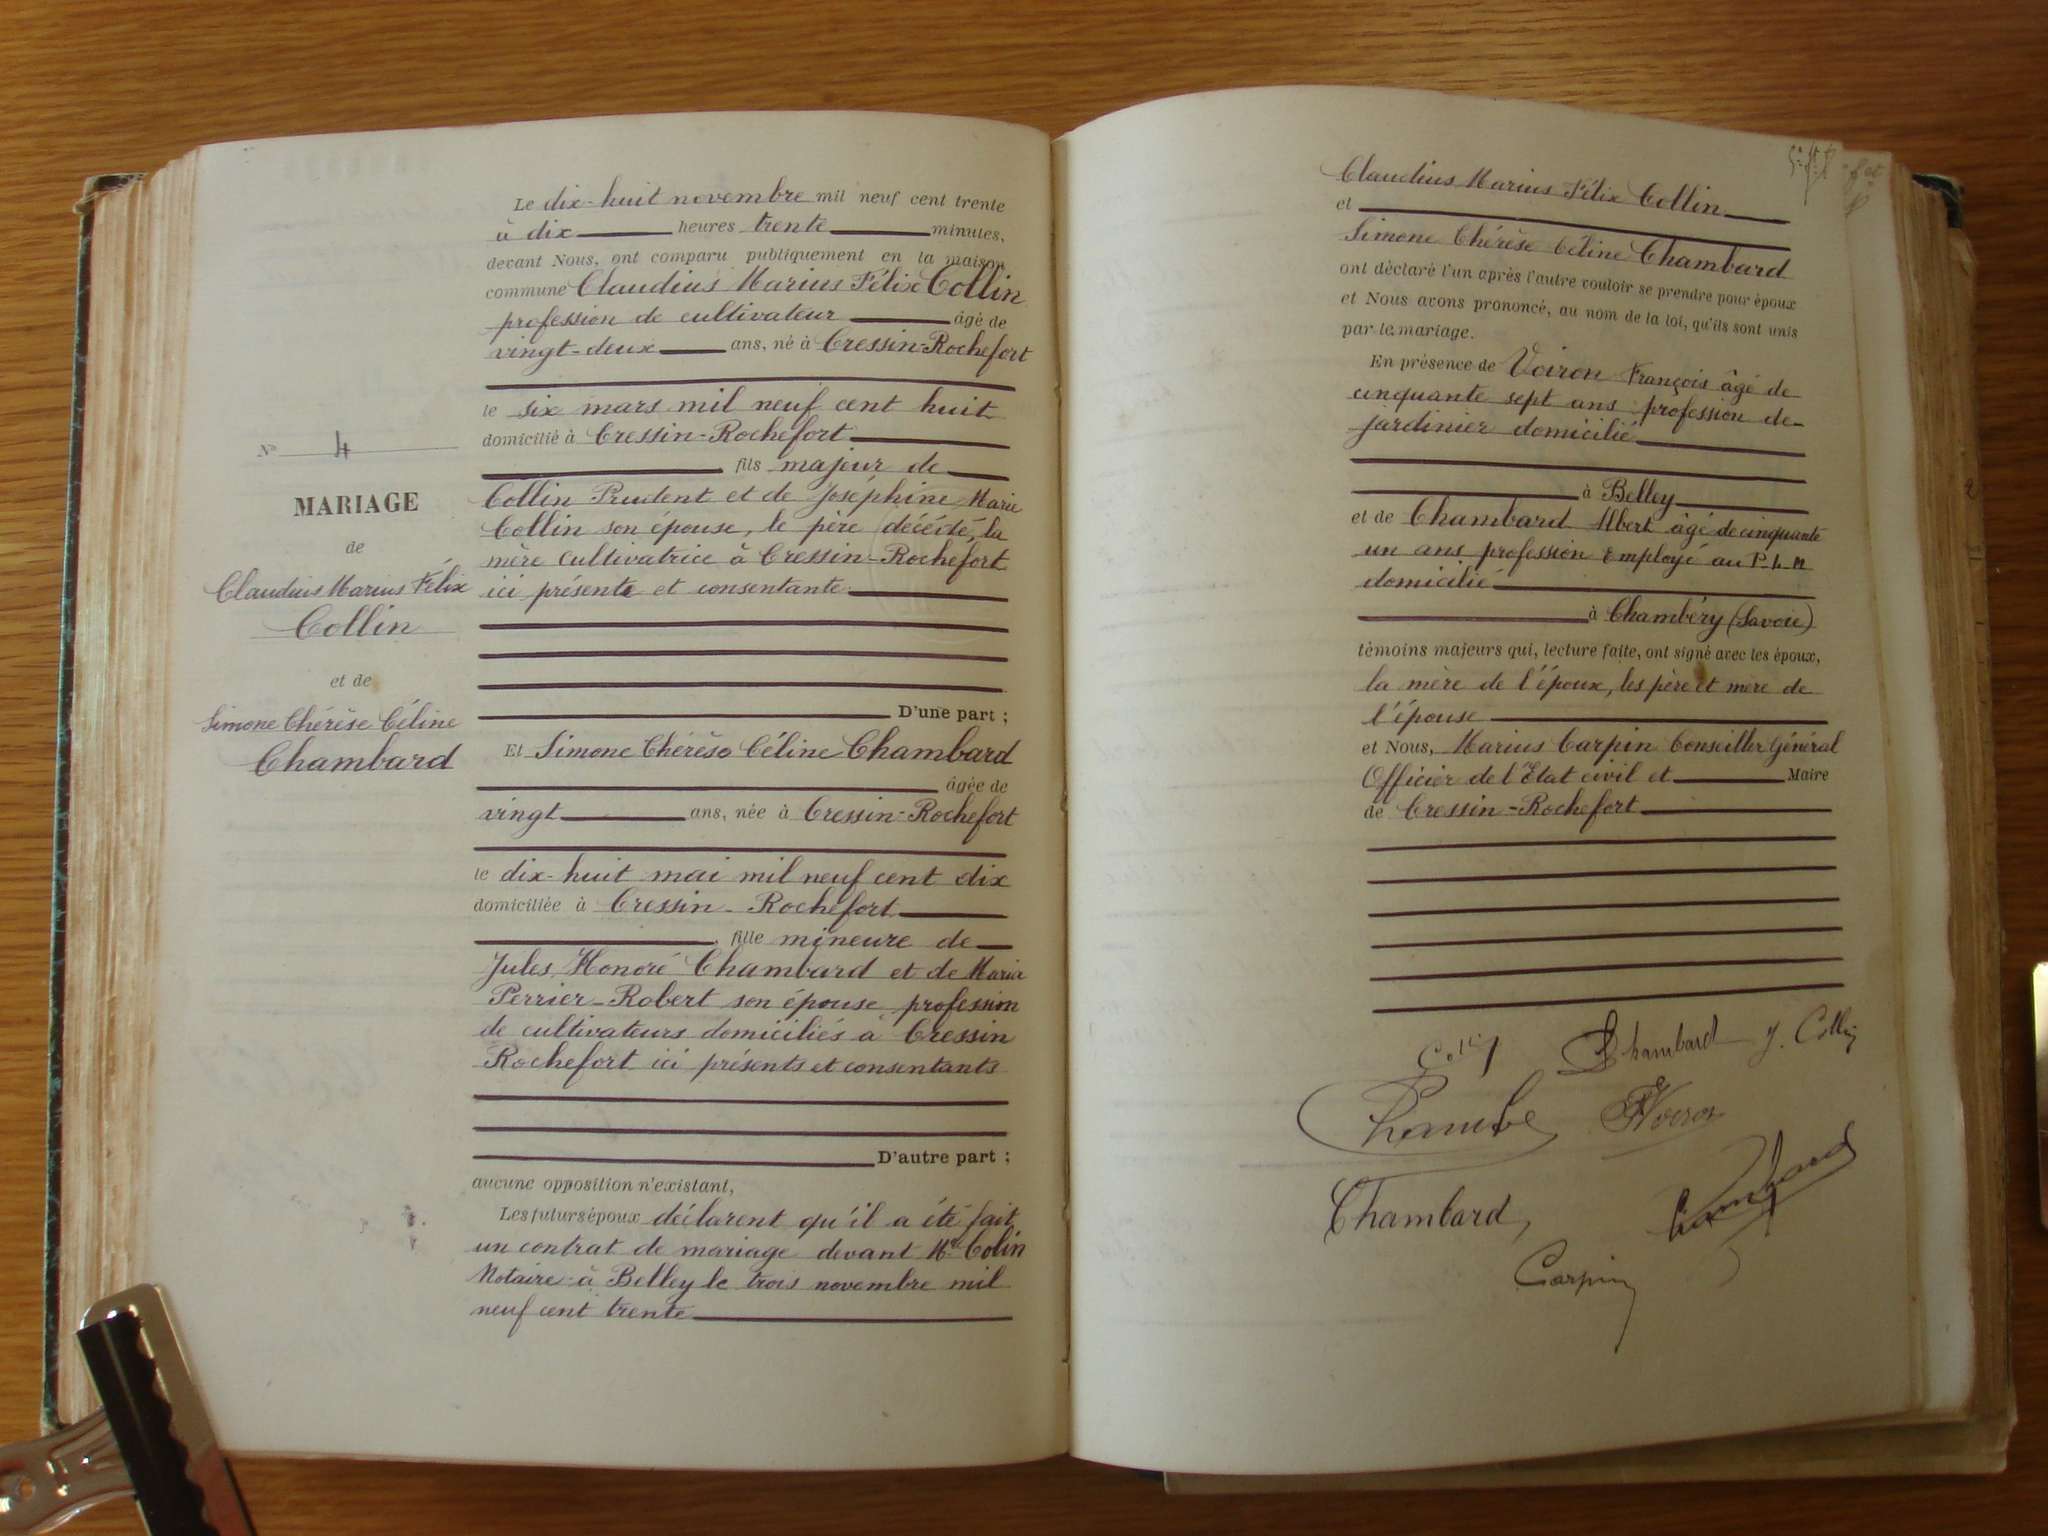 Nº 4
MARIAGE
de
Claudius Marius Félix
Collin
et de
Simone Thérèse Céline
Chambard
Le dix-huit novembre mil neuf cent trente
à dix heures trente minutes,
devant Nous, ont comparu publiquement en la maison
commune Claudius Marius Félix Collin
profession de cultivateur âgé de
vingt-deux ans, né à Cressin-Rochefort
le six mars mil neuf cent huit
domicilié à Cressin-Rochefort
, fils majeur de
Collin Prudent et de Joséphine Marie
Collin son épouse, le père décédé, la
mère cultivatrice à Cressin-Rochefort
ici présente et consentante
D'une part ;
Et Simone Thérèse Céline Chambard
âgée de
vingt ans, née à Cressin-Rochefort
le dix-huit mai mil neuf cent dix
domiciliée à Cressin-Rochefort
, fille mineure de
Jules Honoré Chambard et de Maria
Perrier-Robert son épouse profession
de cultivateurs domiciliés à Cressin
Rochefort ici présents et consentants
D'autre part ;
aucune opposition n'existant,
Les futurs époux déclarent qu'il a été fait
un contrat de mariage devant Me Colin
Notaire à Belley le trois novembre mil
neuf cent trente
Claudius Marius Félix Collin
et
Simone Thérèse Céline Chambard
ont déclaré l'un après l'autre vouloir se prendre pour époux
et Nous avons prononcé, au nom de la loi, qu'ils sont unis
par le mariage.
En présence de Voiron François âgé de
cinquante sept ans profession de
jardinier domicilié
à Belley
et de Chambard Albert âgé de cinquante
un ans profession Employé au P-L-M
domicilié
à Chambéry (Savoie)
témoins majeurs qui, lecture faite, ont signé avec les époux,
la mère de l'époux, les père et mère de
l'épouse
et Nous, Marius Carpin Conseiller Général
Officier de l'Etat civil et Maire
de Cressin-Rochefort
Collin S Chambard J. Collin
Voiron
Chambard Chambard
Carpin